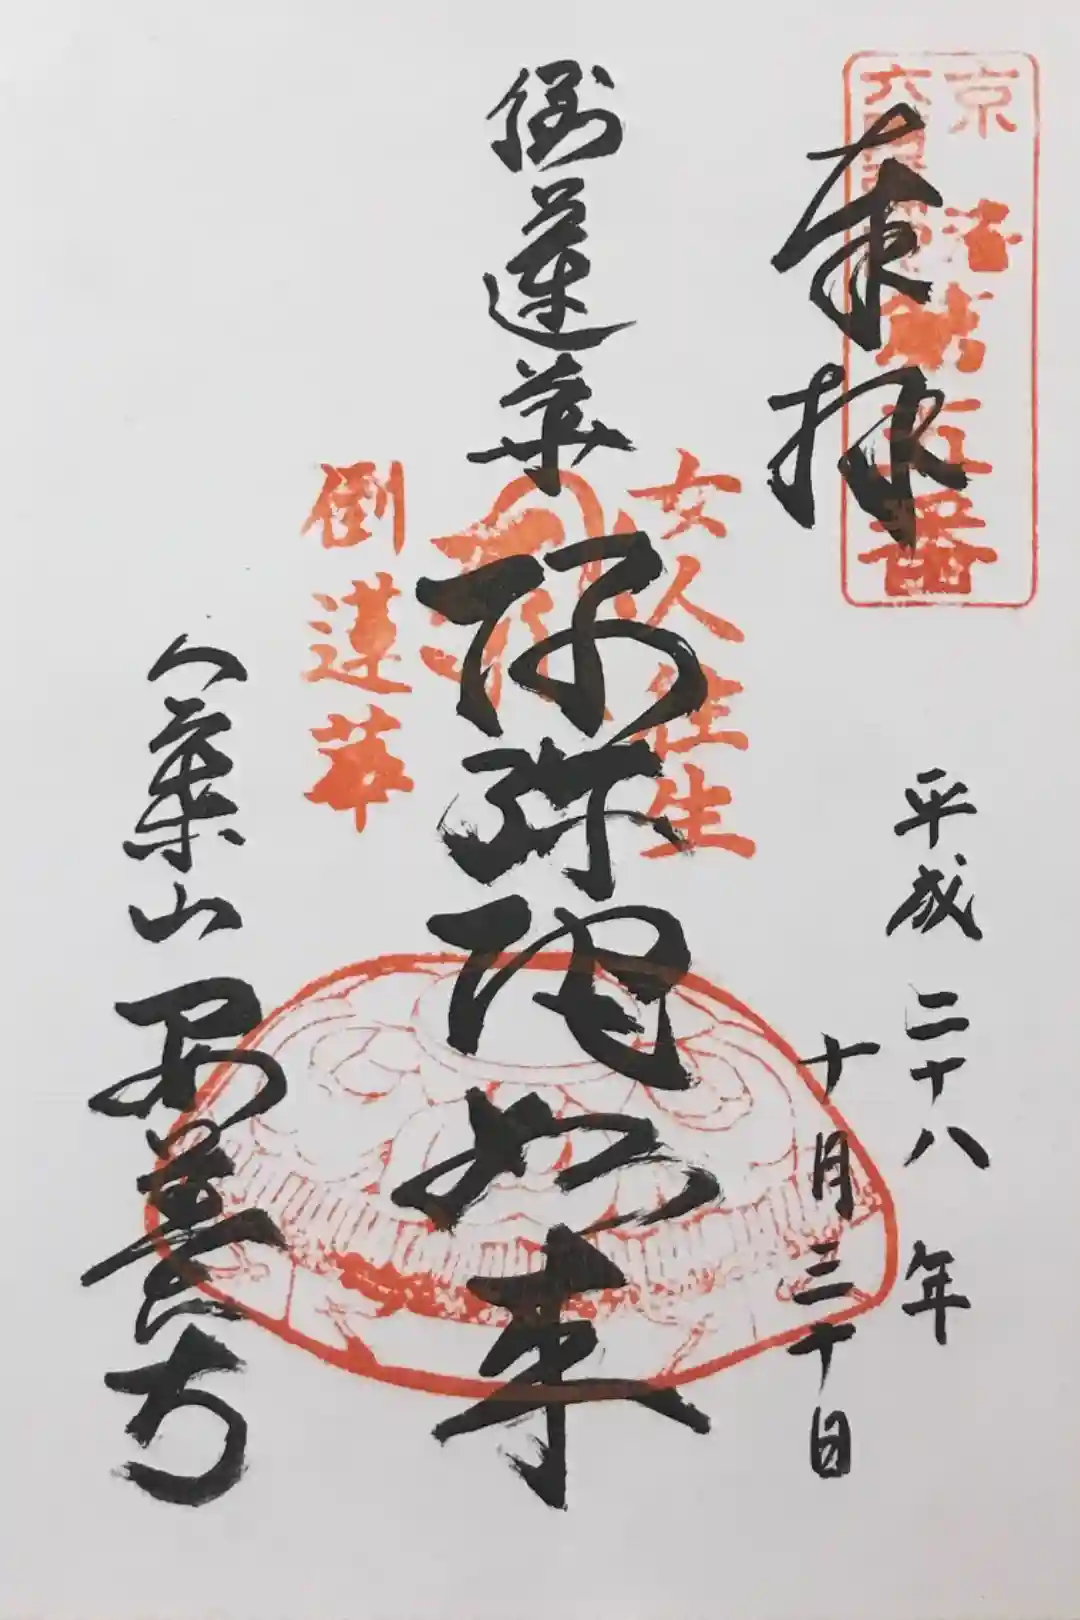 京洛
六阿弥陀
第五番
奉拝
平成二十八年
十月三十日
倒蓮華
阿弥陀如来
女人往生
倒蓮華
八葉山
安養寺